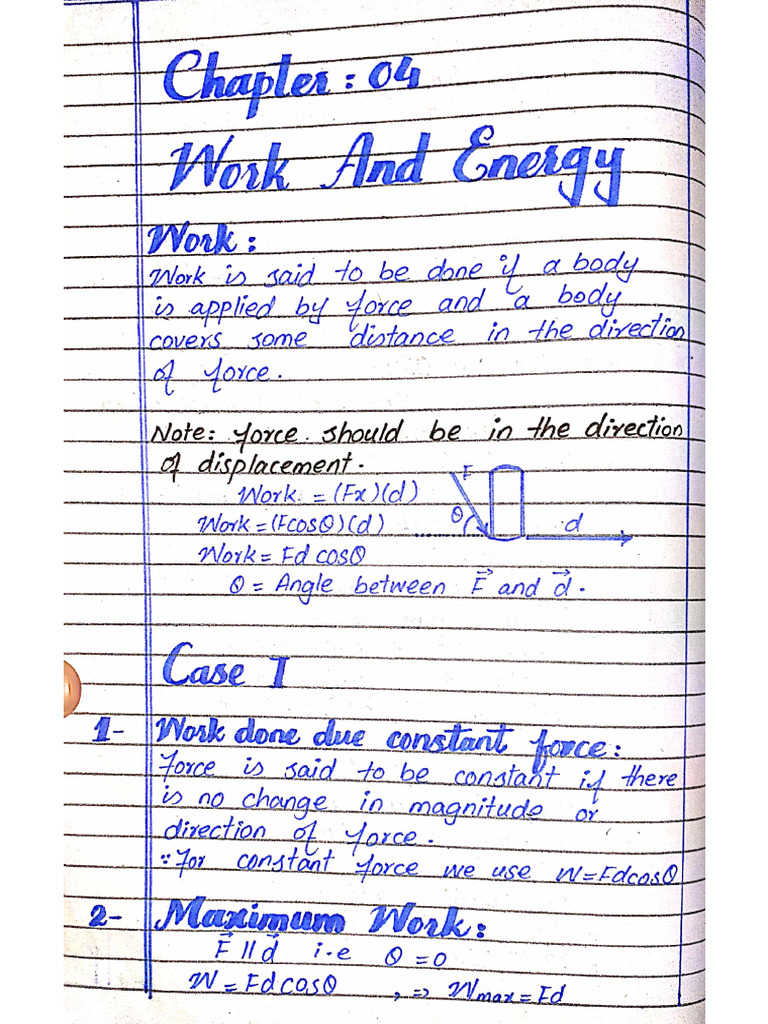 Chapter: 04
Work And Energy
Work:
Work is said to be done if a body
is applied by force and a body
covers some distance in the direction
of force.
Note: force should be in the direction
of displacement.
F
Work = (Fx)(d)
Work = (Fcosθ)(d)
θ
d
Work = Fd cosθ
θ = Angle between F⃗ and d⃗.
Case I
1- Work done due constant force:
Force is said to be constant if there
is no change in magnitude or
direction of force.
∵ For constant force we use W=Fdcosθ
2- Maximum Work:
F⃗ || d⃗ i.e θ = 0
W = Fd cosθ , => Wmax = Fd